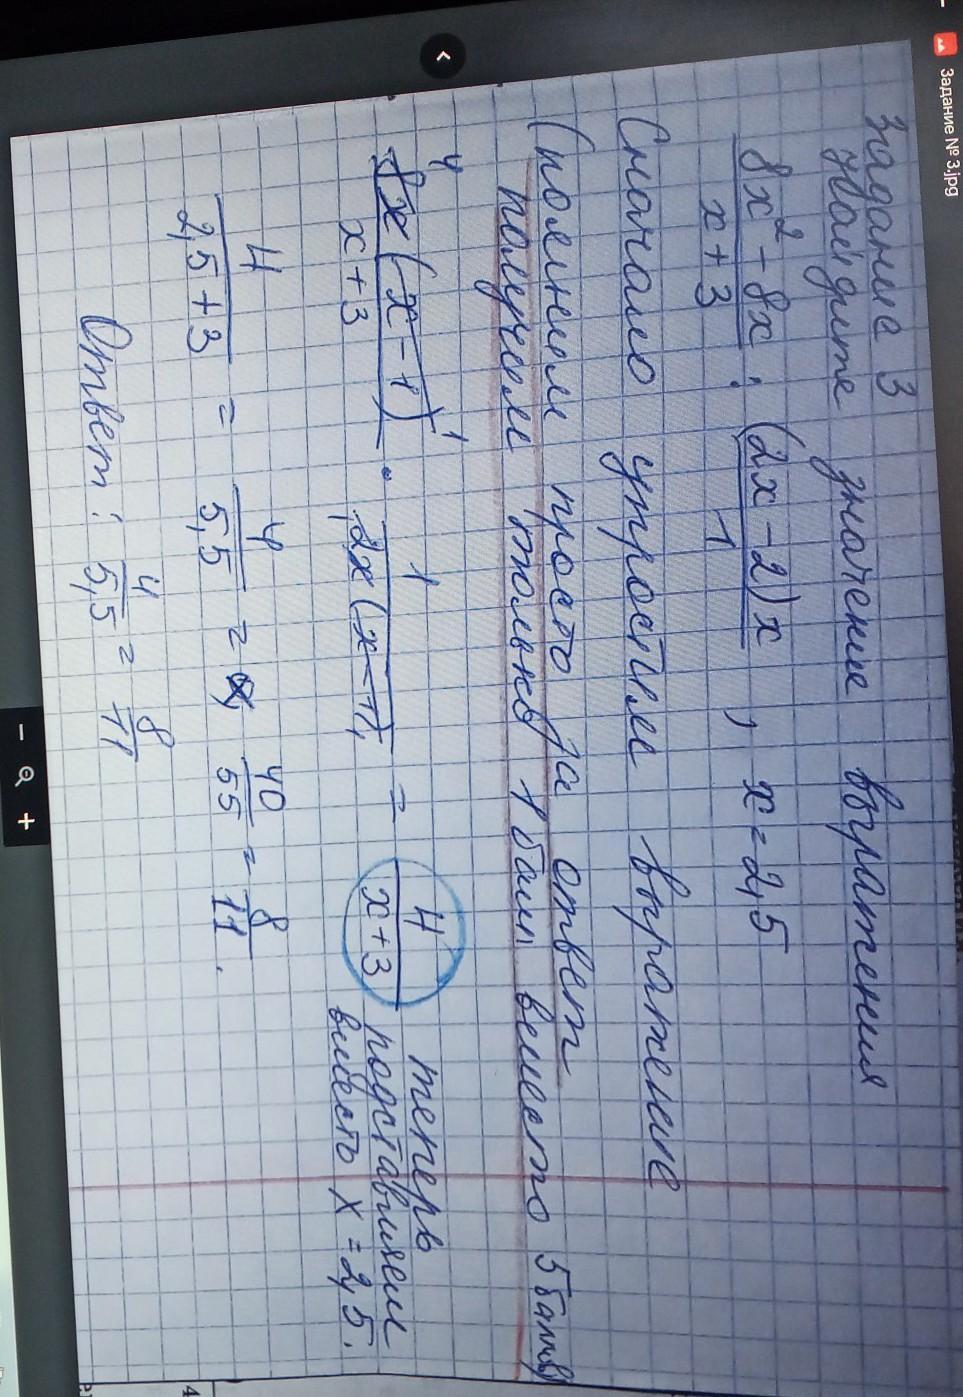 Задание № 3.jpg
Задание 3
Найдите значение выражения
8x² - 8x / x + 3 : (2x - 2)x / 1 , x = 2,5
Сначало упростим выражение
(полжнем просто за ответ
получаем только 1 балл вешето 5 баллв)
4 8x(x - 1) 1 / x + 3 · 1 / 2x(x - 1) 1 = 4 / x + 3 теперь
подставляем
вместь x = 2,5.
4 / 2,5 + 3 = 4 / 5,5 = 40 / 55 = 8 / 11.
Ответ: 4 / 5,5 = 8 / 11